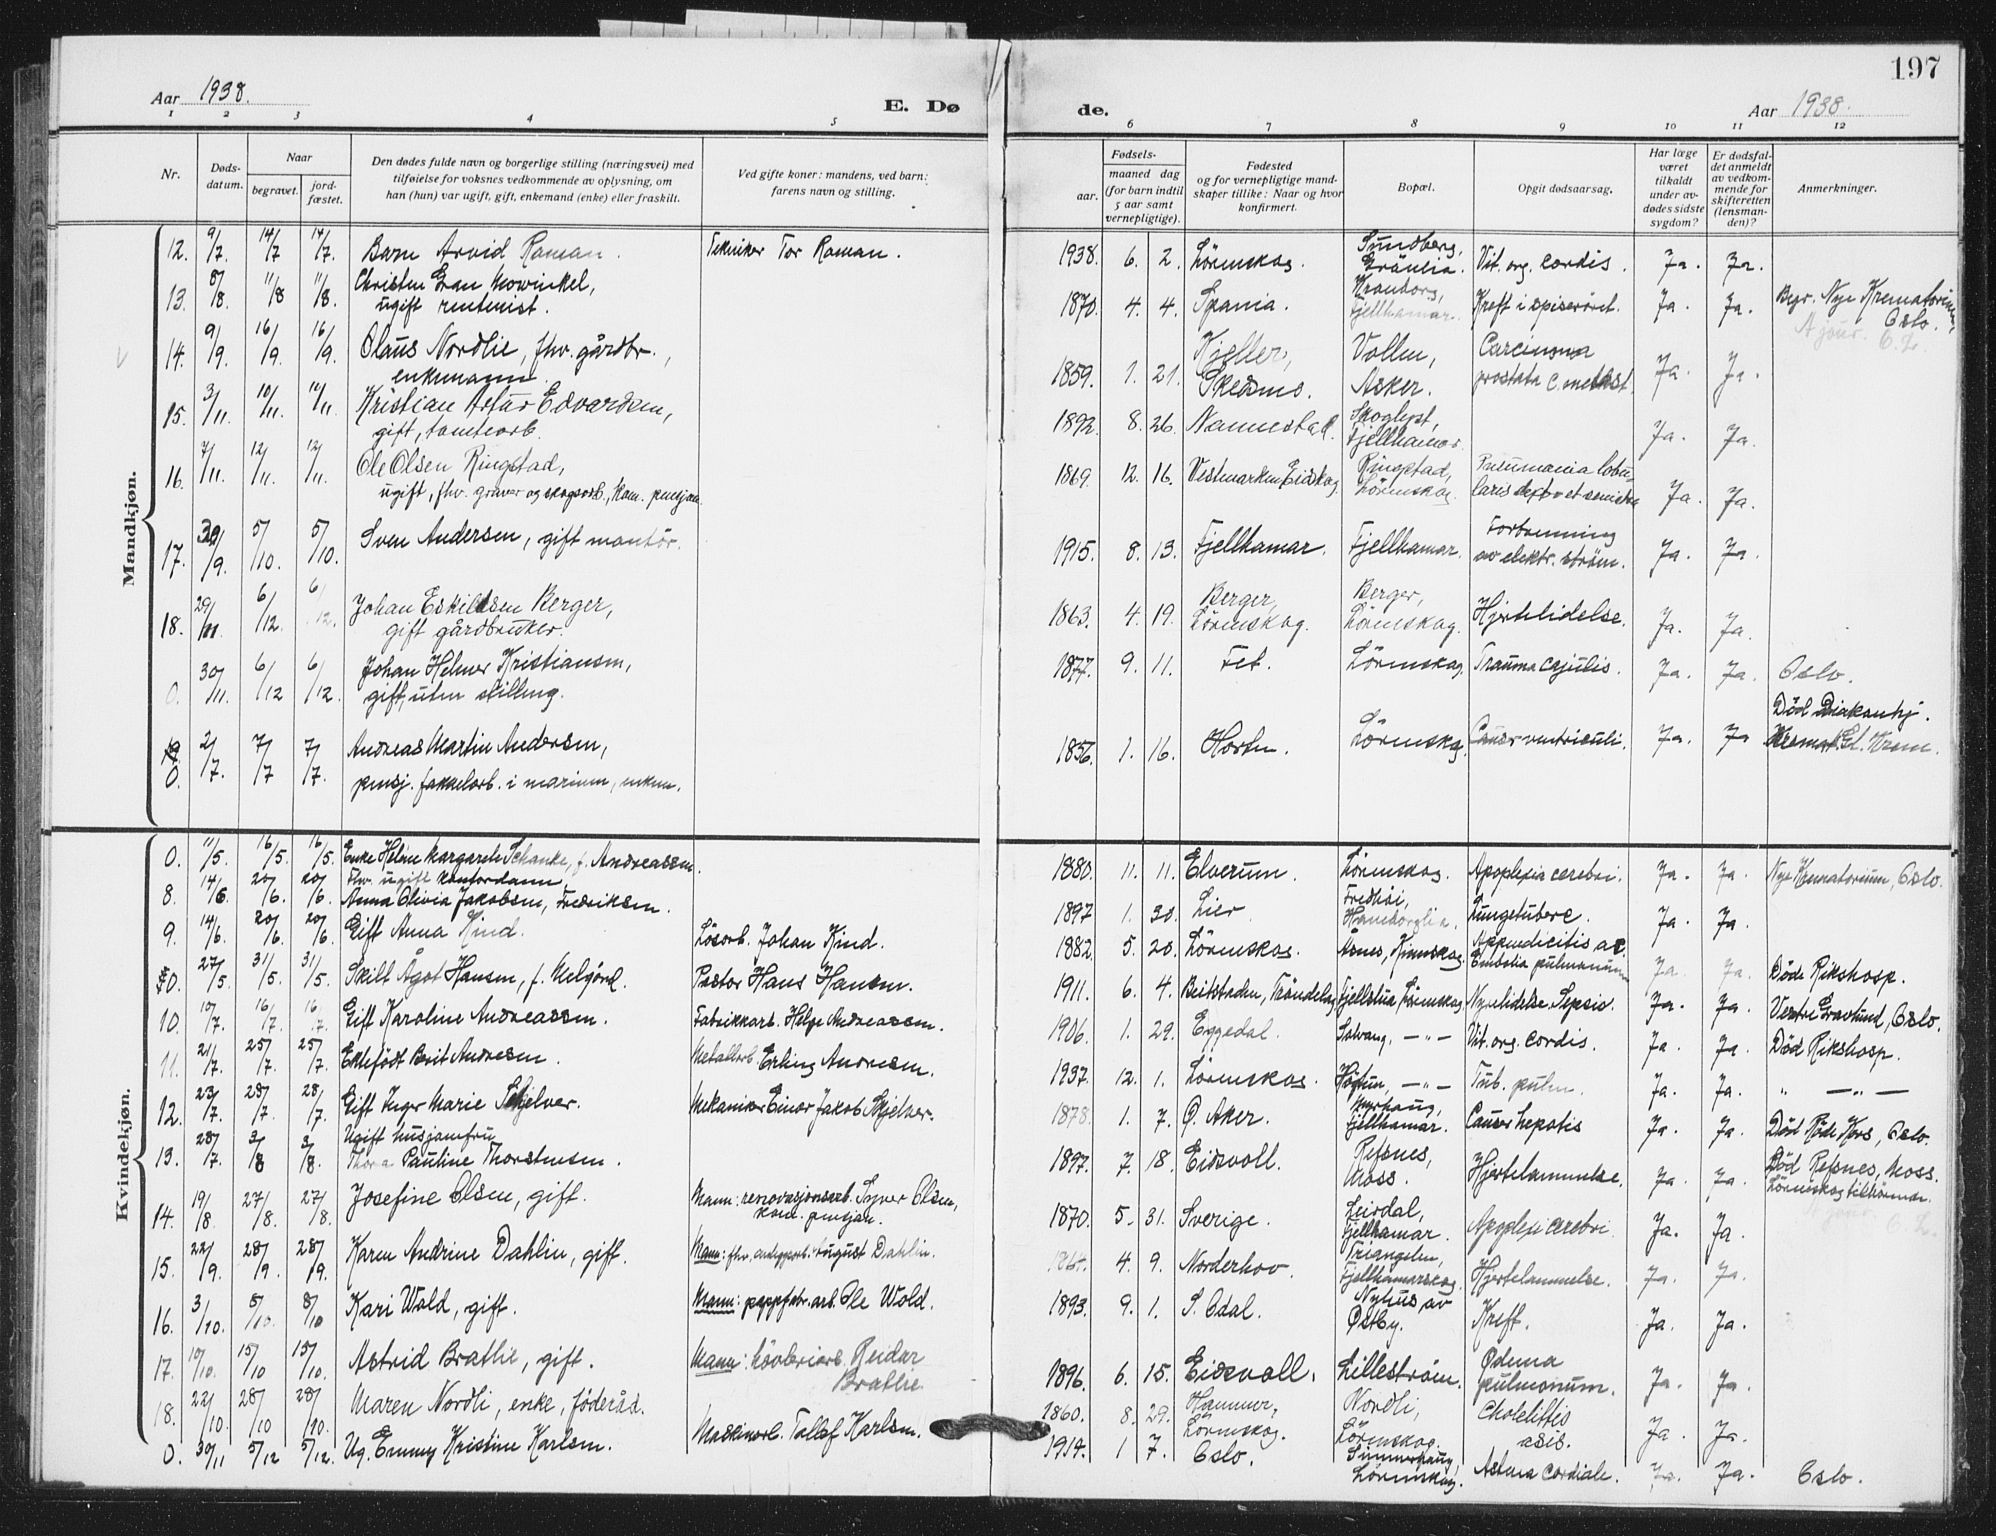 197
Aar 1938.
E. Dø
de.
Aar 1938.
1 2 3 4 5
6 7 8 9 10 11 12
Nr.
Døds-
datum.
Naar
begravet.
jord-
fæstet.
Den dødes fulde navn og borgerlige stilling (næringsvei) med
tilføielse for voksnes vedkommende av oplysning, om
han (hun) var ugift, gift, enkemand (enke) eller fraskilt.
Ved gifte koner: mandens, ved barn:
farens navn og stilling.
Fødsels-
aar.
maaned dag
(for barn indtil
5 aar samt
vernepligtige).
Fødested
og for vernepligtige mand-
skaper tillike: Naar og hvor
konfirmert.
Bopæl.
Opgit dødsaarsag.
Har læge
været
tilkaldt
under av-
dødes sidste
sygdom?
Er dødsfal-
det anmeldt
av vedkom-
mende for
skifteretten
(lensman-
den)?
Anmerkninger.
Mandkjøn.
12. 9/7. 14/7 14/7. Barn Arvid Raman. Tekniker Tor Raman. 1938. 6. 2. Lörenskog. Vit. org. cordis. Ja. Ja.
13. 8/8. 11/8 11/8. Christen Gran Mowinkel,
ugift rentenist. 1870. 4. 4. Spania. Fjellhamar. Kreft i spiseröret. Ja. Ja. Begr. Nye Krematorium
Oslo.
14. 9/9. 16/9. 16/9. Olaus Nordlie, fhv. gårdbr.,
enkemann. 1859. 1. 21. Kjeller,
Skedsmo. Vollen,
Asker. Carcinoma
prostata c. metast. Ja. Ja.
15. 3/11. 10/11. 10/11. Kristian Artur Edvardsen,
gift, tomtearb. 1892. 8. 26. Nannestad. Skoglyst,
Fjellhamar. Ja. Ja.
16. 7/11. 12/11. 12/11. Ole Olsen Ringstad,
ugift, fhv. graver og skogsarb., kom. pensjon. 1869. 12. 16. Vestmarken Eidskog. Ringstad,
Lörenskog. Pneumonia lobu-
laris Ja. Ja.
17. 30/9. 5/10. 5/10. Sven Andersen, gift montör. 1915. 8. 13. Fjellhamar. Fjellhamar. Forbrenning
av elektr. ström. Ja. Ja.
18. 29/11. 6/12. 6/12. Johan Eskildsen Berger,
gift gårdbruker. 1863. 4. 19. Berger,
Lörenskog. Berger,
Lörenskog. Hjertelidelse. Ja. Ja.
0. 30/11. 6/12 6/12. Johan Helmer Kristiansen,
gift, uten stilling. 1877. 9. 11. Fet. Lörenskog. Trauma Ja. Ja. Oslo.
0. 2/7. 7/7 7/7. Andreas Martin Andersen,
pensj. i marinen, enkem. 1856. 1. 16. Horten. Lörenskog. Cancer ventriculi. Ja. Ja Död Diakonhj.
Gl. Krem.
Kvindekjøn.
0. 11/5. 16/5. 16/5. Enke Helene Margarete Schanke, f. Andreassen. 1880. 11. 11. Elverum. Lörenskog. Apoplexia cerebri. Ja. Ja. Nye Krematorium, Oslo.
8. 14/6 20/6. 20/6. Fhv. ugift kontordame
Anna Olivia Jakobsen, Fredriksen. 1897 1. 30. Lier. Lungetuberc. Ja. Ja.
9. 14/6. 20/6. 20/6. Gift Anna Kind. Lösarb. Johan Kind. 1882. 5. 20. Lörenskog. Appendicitis ac.
Embolia pulmonum Ja. Ja.
0. 27/5. 31/5. 31/5. Skilt Ågot Hansen, f. Melgård. Pastor Hans Hansen. 1911. 6. 4. Beitstaden, Tröndelag. Fjellstua, Lörenskog. Nyrelidelse. Sepsis. Ja. Ja. Döde Rikshosp.
Vestre Gravlund, Oslo.
10. 10/7. 16/7. 16/7. Gift Karoline Andreassen. Fabrikkarb. Helge Andreassen. 1906. 1. 29. Eggedal. Solvang. –„– Vit. org. cordis. Ja. Ja. Död Rikshosp.
11. 21/7. 25/7. 25/7. Ektefödt Berit Andresen. Metallarb. Erling Andresen. 1937. 12. 1. Lörenskog. Högtun, –„– Tub. pulm. Ja. Ja. „ –„–
12. 23/7. 28/7. 28/7. Gift Inger Marie Skjelver. Mekaniker Einar Jakob Skjelver. 1878. 1. 7. Ö. Aker. Fjellhamar. Cancer hepatis Ja. Ja. Död Röde Kors, Oslo.
13. 28/7. 3/8 3/8. Ugift husjomfru
Thora Pauline Thorstensen. 1897. 7. 18. Eidsvoll. Refsnes,
Moss. Hjertelammelse. Ja. Ja. Död Refsnes, Moss.
Lörenskog
14. 19/8. 27/8. 27/8. Josefine Olsen, gift. Mann: renovasjonsarb. Syver Olsen,
kom. pensjon. 1870. 5. 31. Sverige. Lurdal,
Fjellhamar. Apoplexi cerebri Ja. Ja.
15. 22/9. 28/9. 28/9. Karen Andrine Dahlin, gift. Mann: fhv. August Dahlin. 4. 9. Norderhov. Triangelen,
Fjellhamarskog. Hjertelammelse. Ja. Ja.
16. 3/10. 5/10. 8/10 Kari Wald, gift. Mann: pappfabr. arb. Ole Wold. 1893. 9. 1. S. Odal. Nyhus av
Østby. Kreft. Ja. Ja.
17. 10/10. 15/10 15/10. Astrid Brathie, gift. Mann: höveriarb. Reidar
Brathie. 1896. 6. 15. Eidsvoll. Lilleström. Ødema
pulmonum. Ja. Ja.
18. 22/10. 28/10 28/10. Maren Nordli, enke, föderåd. 1860. 8. 29. Hammer,
Lörenskog. Nordli,
Lörenskog. Ja. Ja.
0. 30/11 5/12 5/12. Ug. Emmy Kristine Karlsen. Maskinarb. Tollef Karlsen. 1914. 1 7. Oslo. Lörenskog. Astma cordiale. Ja. Ja. Oslo.